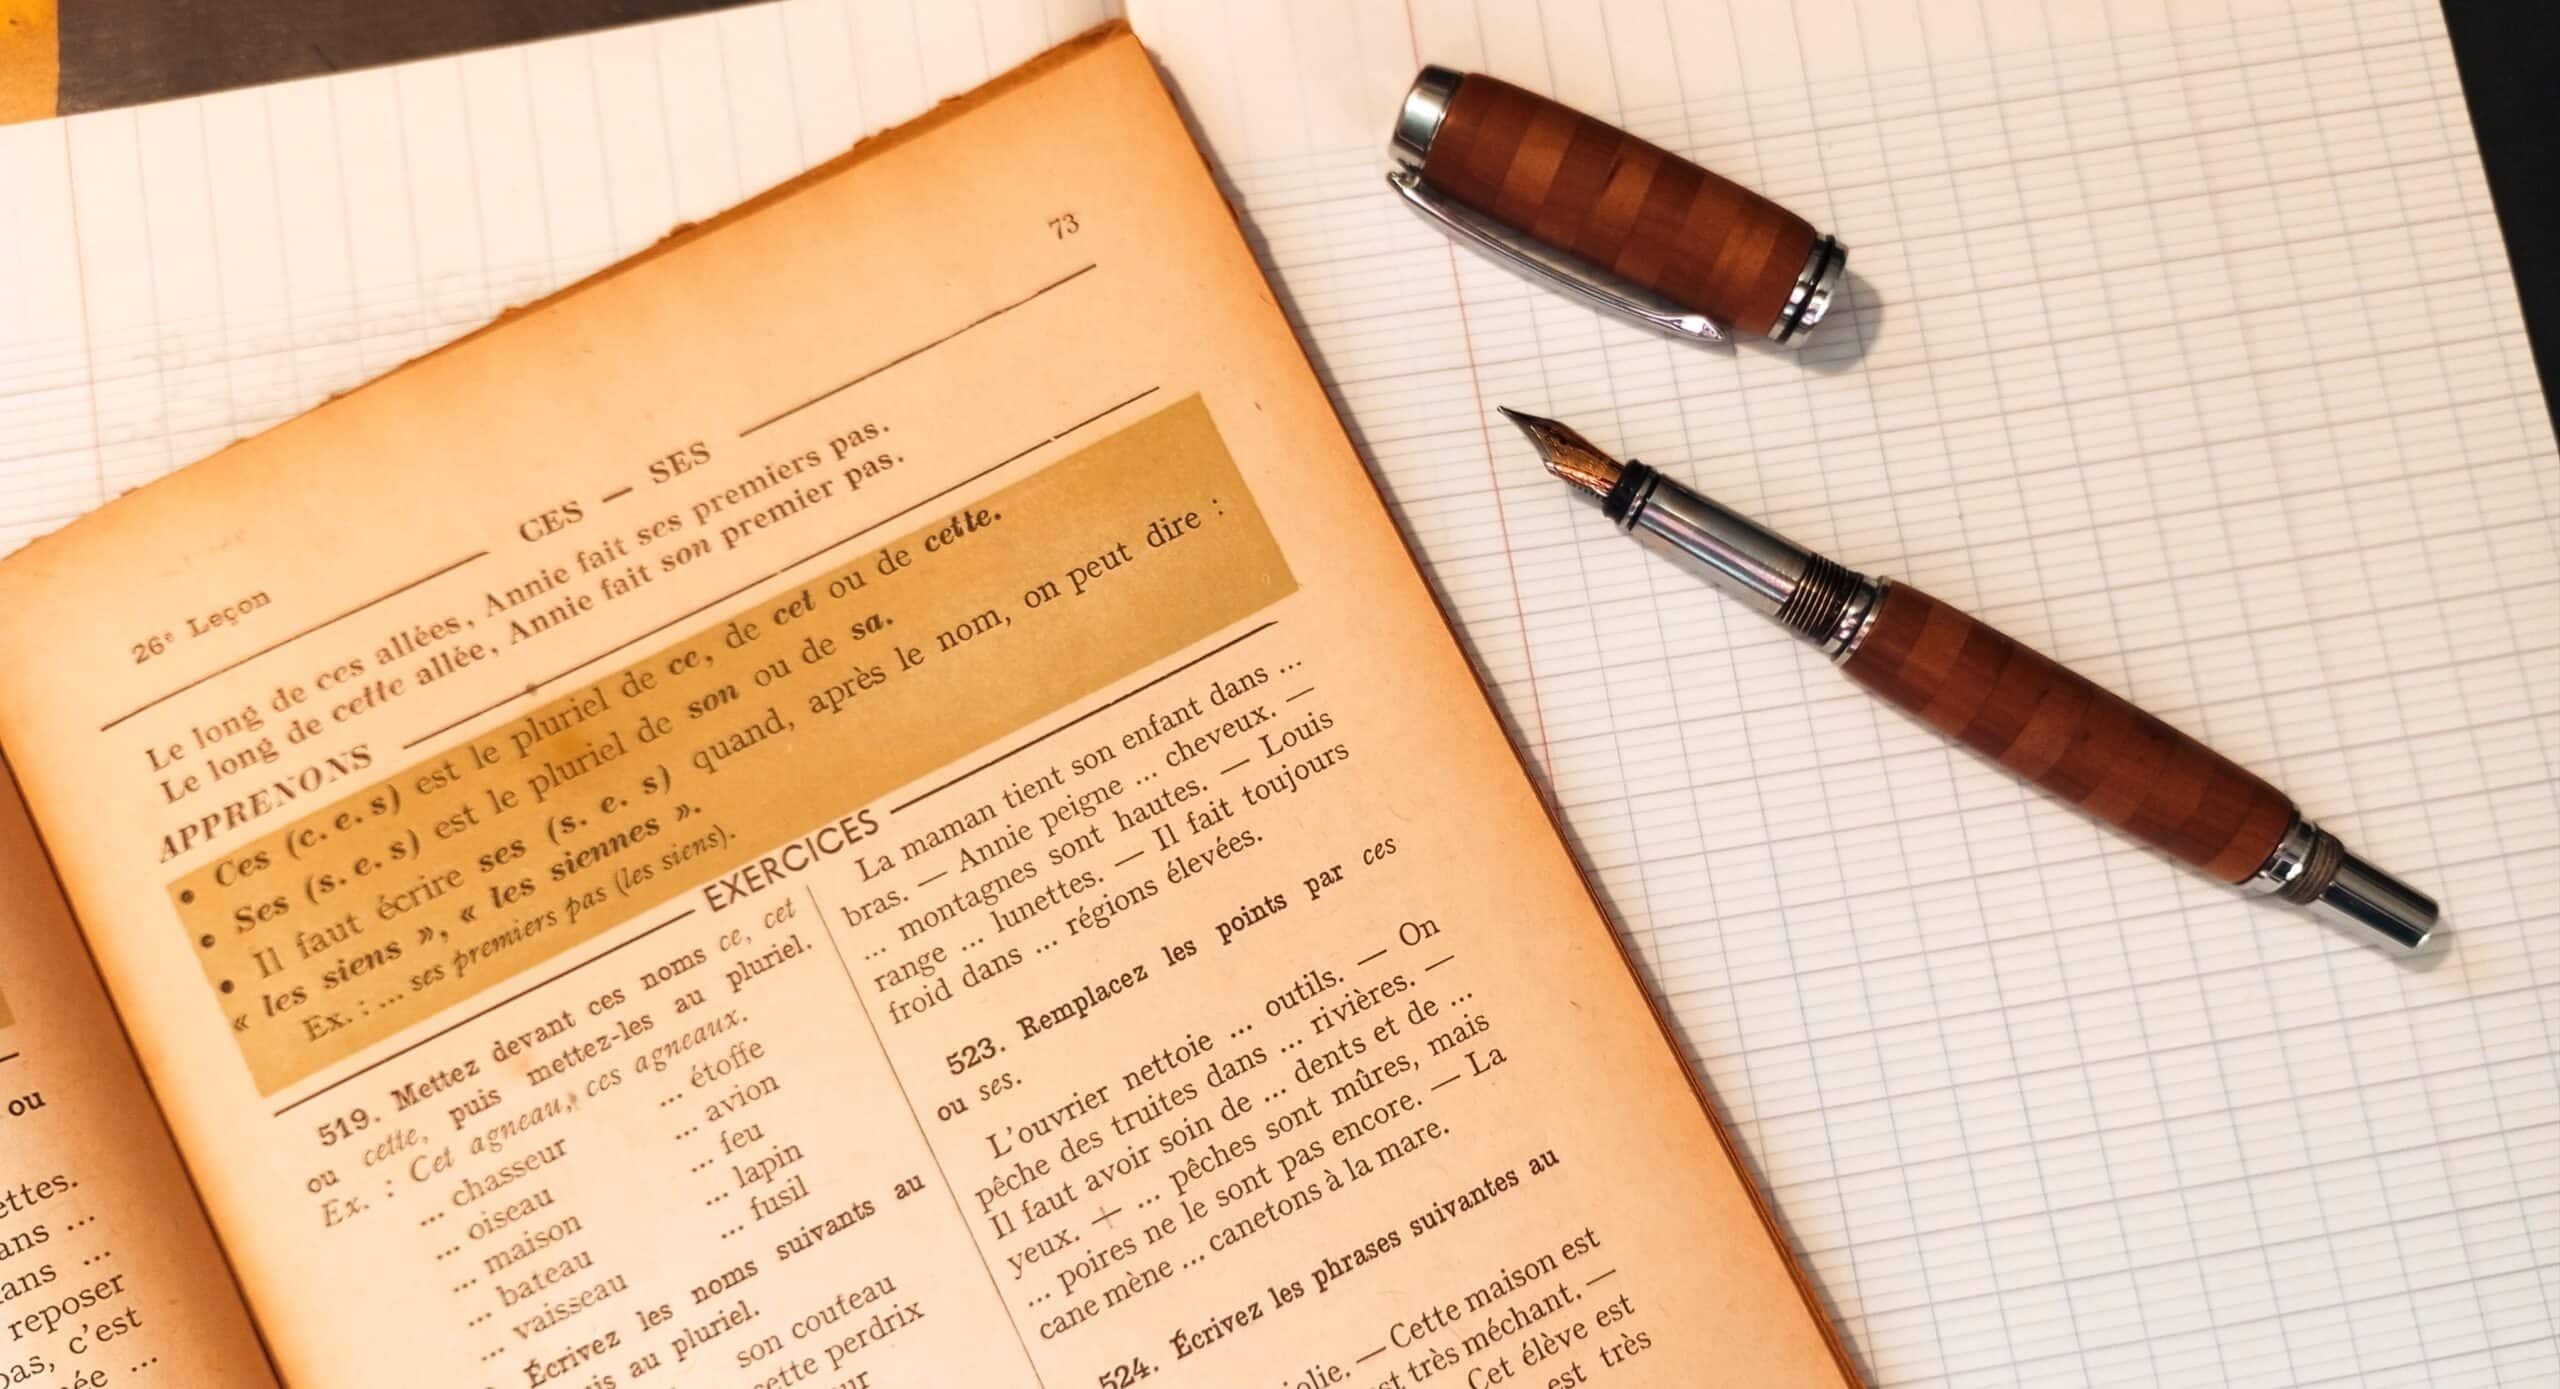 73
26e Leçon
CES — SES
Le long de ces allées, Annie fait ses premiers pas.
Le long de cette allée, Annie fait son premier pas.
APPRENONS
• Ces (c. e. s) est le pluriel de ce, de cet ou de cette.
• Ses (s. e. s) est le pluriel de son ou de sa.
• Il faut écrire ses (s. e. s) quand, après le nom, on peut dire :
« les siens », « les siennes ».
Ex. : ... ses premiers pas (les siens).
EXERCICES
519. Mettez devant ces noms ce, cet
ou cette, puis mettez-les au pluriel.
Ex. : Cet agneau, ces agneaux.
... chasseur
... oiseau
... maison
... bateau
... vaisseau
... étoffe
... avion
... feu
... lapin
... fusil
Écrivez les noms suivants au
au pluriel.
son couteau
cette perdrix
La maman tient son enfant dans ...
bras. — Annie peigne ... cheveux. —
... montagnes sont hautes. — Louis
range ... lunettes. — Il fait toujours
froid dans ... régions élevées.
523. Remplacez les points par ces
ou ses.
L'ouvrier nettoie ... outils. — On
pêche des truites dans ... rivières. —
Il faut avoir soin de ... dents et de ...
yeux. — ... pêches sont mûres, mais
... poires ne le sont pas encore. — La
cane mène ... canetons à la mare.
524. Écrivez les phrases suivantes au
jolie. — Cette maison est
est très méchant. —
Cet élève est
est très
ou
ettes.
ans ...
ans ...
reposer
pas, c'est
ée ...